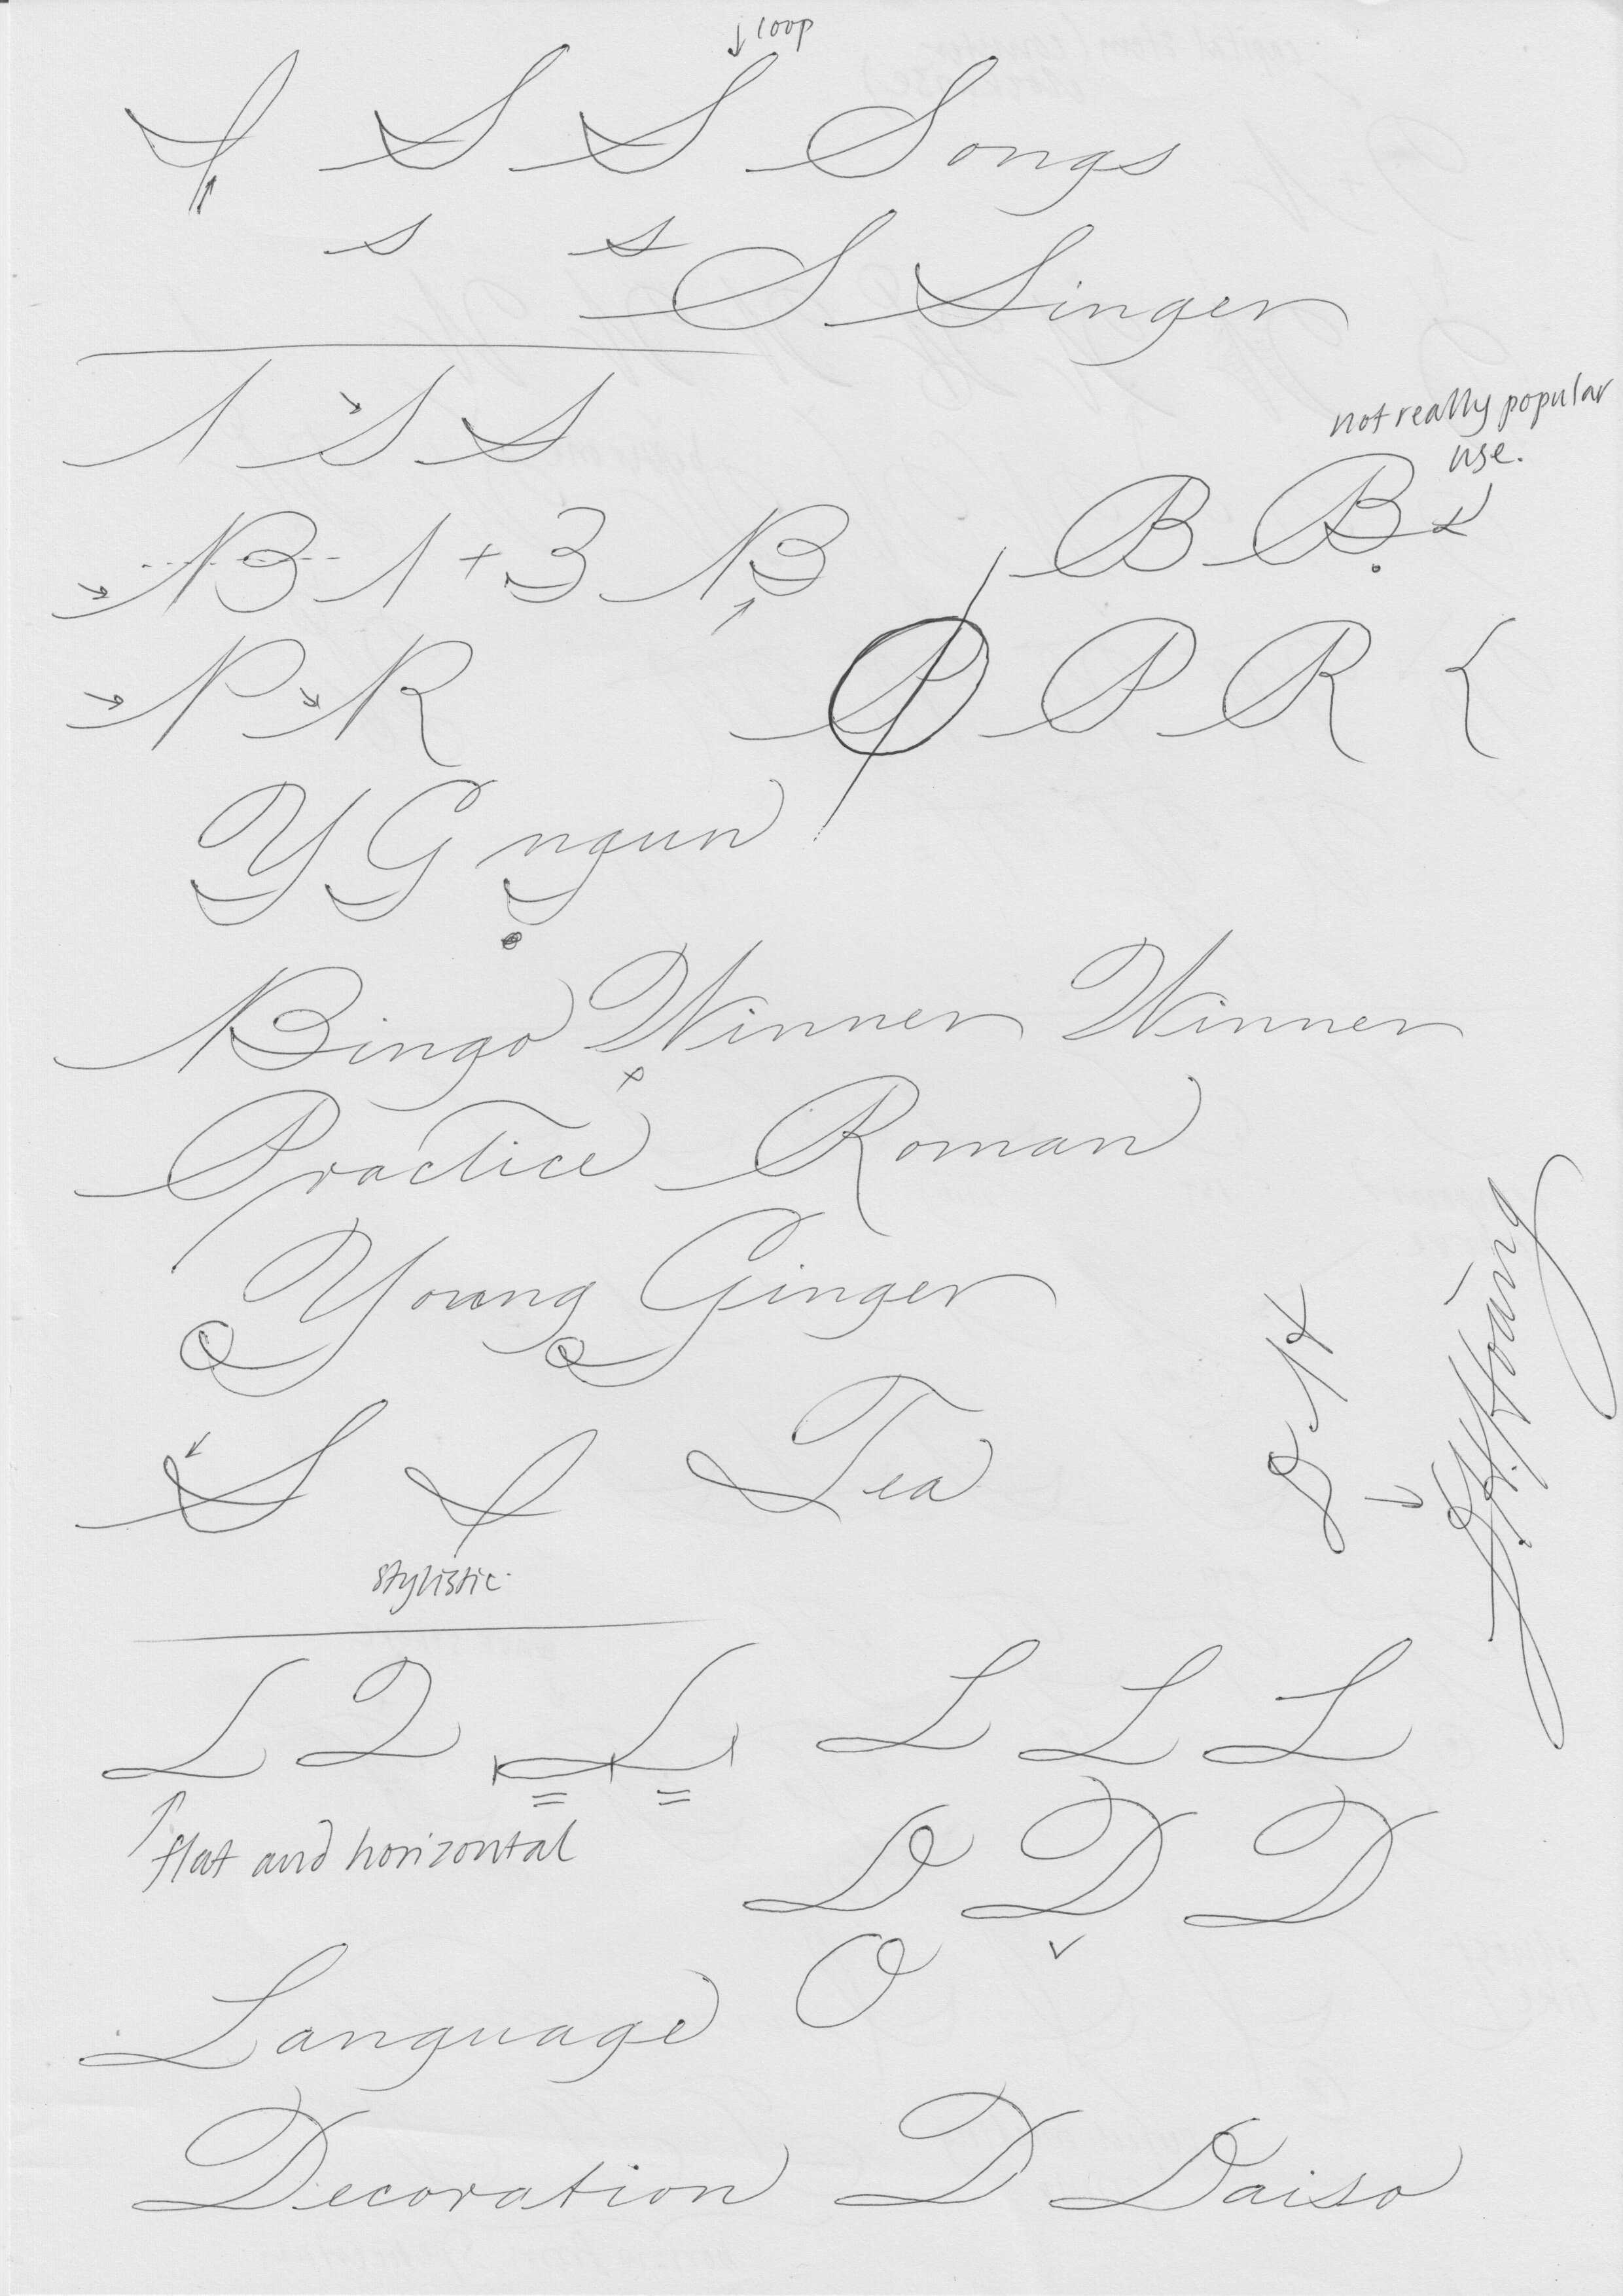 loop
S S S Songs
s s S Singer
1 S S
not really popular
use.
B 1 + 3 B B B
P R P P R {
Y G ngun
Bingo Winner Winner
Practice Roman
Young Ginger
S Tea
stylistic.
L 2 L L L L
flat and horizontal
D D D
Language O
Decoration D Daiso